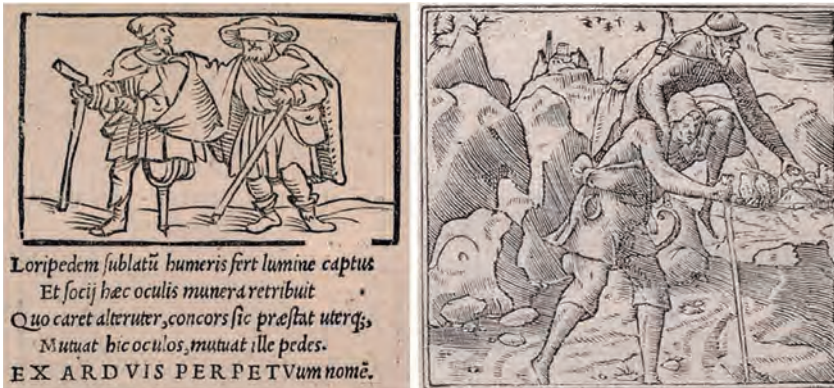 Loripedem sublatũ humeris fert lumine captus
Et socij hæc oculis munera retribuit
Quo caret alteruter, concors sic præstat uterq;,
Mutuat hic oculos, mutuat ille pedes.
EX ARDVIS PERPETVum nomẽ.